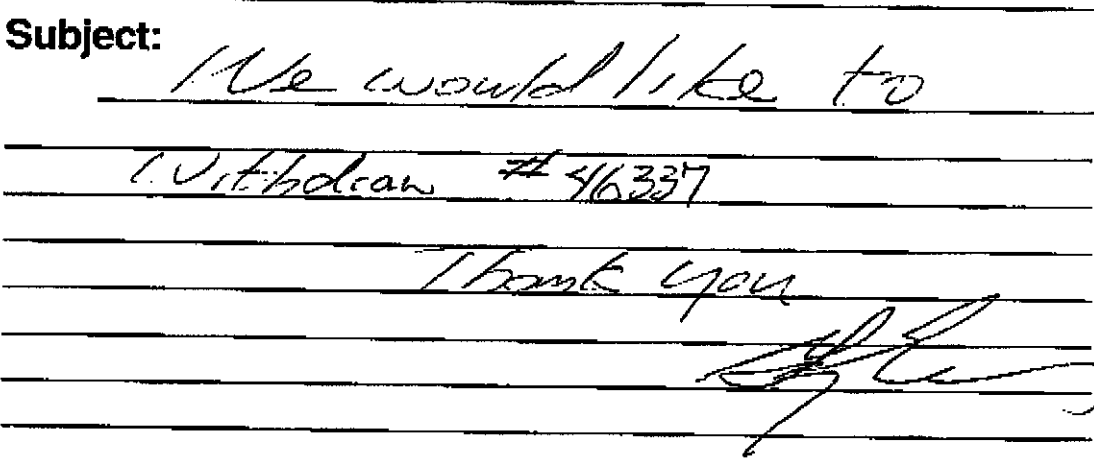 Subject:
We would like to
Withdraw # 46337
Thank you